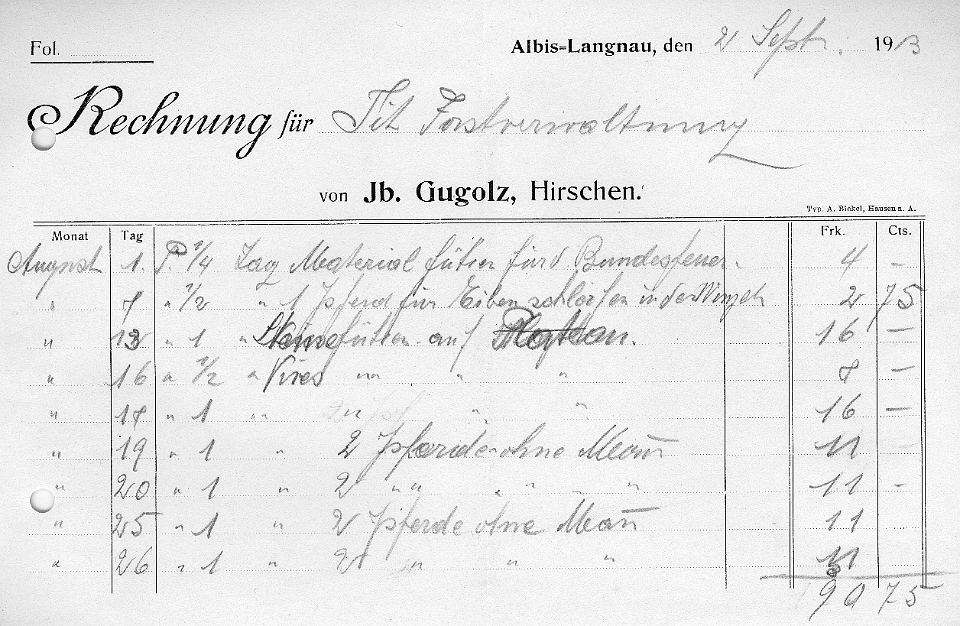 Fol.
Albis-Langnau, den 2 Sept. 1913
Rechnung für Tit Forstverwaltung
von Jb. Gugolz, Hirschen.
Typ. A. Bickel, Hausen a. A.
Monat Tag Frk. Cts.
August 1. P. 1/4 Tag Material führen für d. Bundesfeuer. 4 —
" 8 " 1/2 " 1 Pferd für Eiben schlorfen in der 2 75
" 13 " 1 " führen auf 16 —
" 16 " 1/2 " " " " 8 —
" 18 " 1 " " " " 16 —
" 19 " 1 " 2 Pferde ohne Mann 11 —
" 20 " 1 " 2 " " " " " 11 -
" 25 " 1 " 2 Pferde ohne Mann 11
" 26 " 1 " 2 " " " 11
90 75